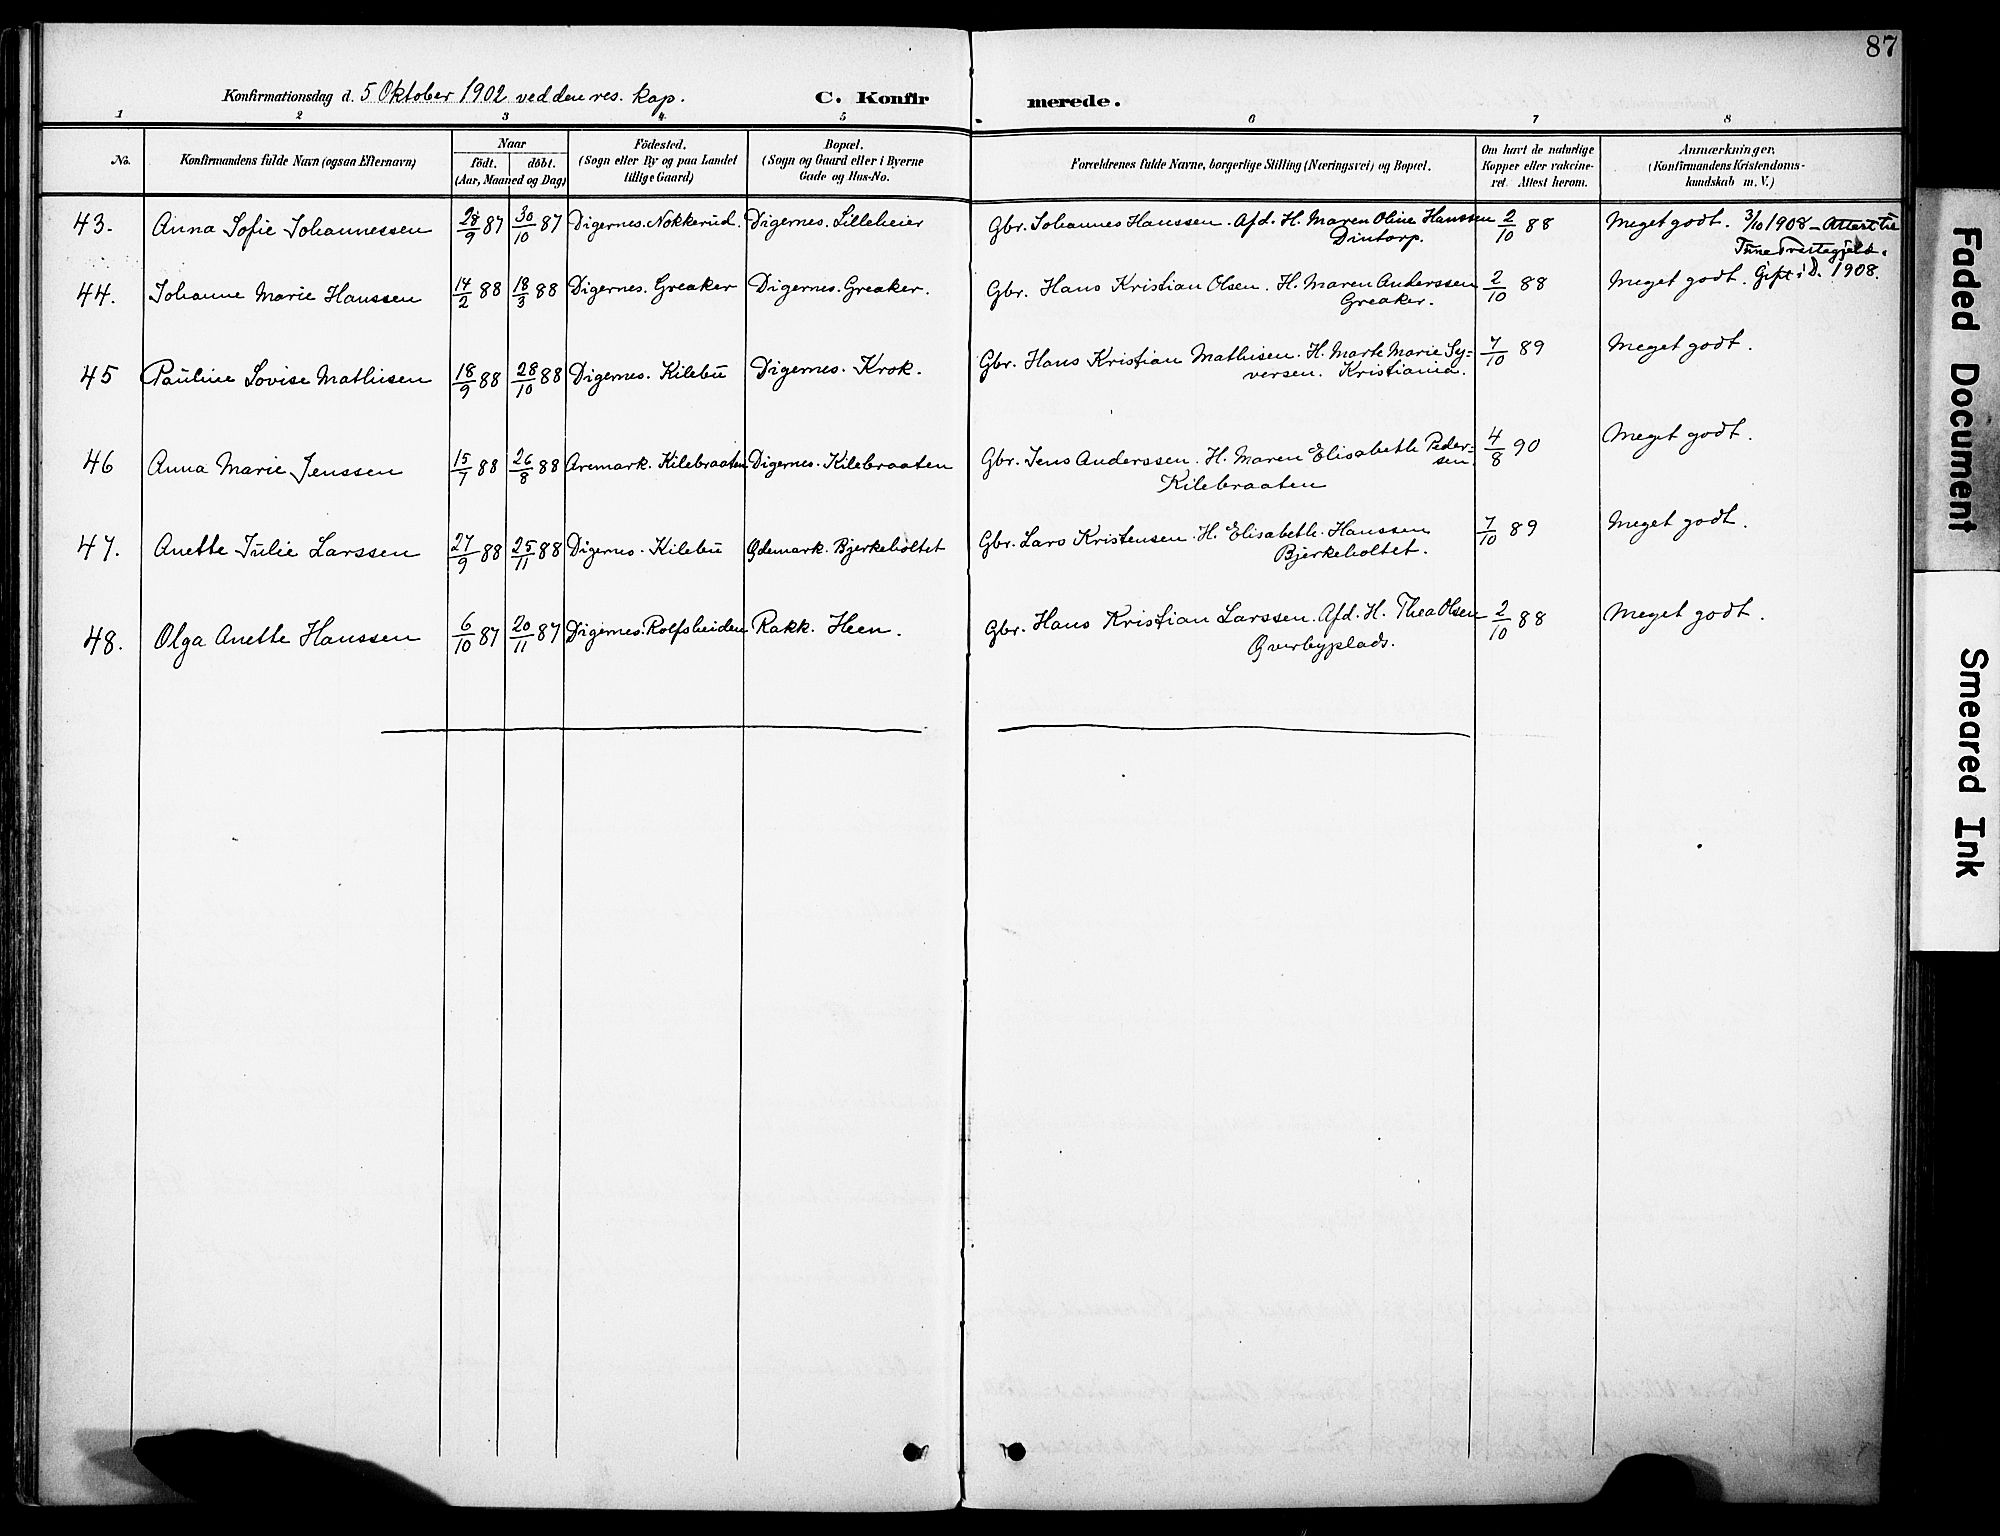 87
Konfirmationsdag d. 5 Oktober 1902 ved den res. kap. C. Konfirmerede.
1 2 3 4. 5 6 7 8
No. Konfirmandens fulde Navn (ogsaa Efternavn) Naar födt. döbt. (Aar, Maaned og Dag) Födested. (Sogn eller By og paa Landet tillige Gaard) Bopæl. (Sogn og Gaard eller i Byerne Gade og Hus-No. Forældrenes fulde Navne, borgerlige Stilling (Næringsvei) og Bopæl. Om havt de naturlige Kopper eller vakcineret. Attest herom. Anmærkninger. (Konfirmandens Kristendomskundskab m. V.)
43. Anna Sofie Johannessen 28/9 87 30/10 87 Digernes. Nokkerud. Digernes. Lilleheier Gbr. Johannes Hanssen. Afd. H. Maren Oline Hanssen 2/10 88 Meget godt. 3/10 1908 - Attest til
Dintorp. Tune Præstegjeld.
44. Johanne Marie Hanssen 14/2 88 18/3 88 Digernes. Greaker Digernes. Greaker. Gbr. Hans Kristian Olsen. H. Maren Anderssen 2/10 88 Meget godt. Gift i D. 1908.
Greaker.
45 Pauline Lovise Mathisen 18/9 88 28/10 88 Digernes. Kilebu Digernes. Krok. Gbr. Hans Kristian Mathisen. H. Marte Marie Sy- 7/10 89 Meget godt.
versen. Kristiania.
46 Anna Marie Jenssen 15/7 88 26/8 88 Aremark. Kilebraaten Digernes. Kilebraaten Gbr. Jens Anderssen. H. Maren Elisabeth Peder- 4/8 90 Meget godt.
sen.
Kilebraaten
47. Anette Julie Larssen 27/9 88 25/11 88 Digernes. Kilebu Ødemark. Bjerkeholtet Gbr. Lars Kristensen. H. Elisabeth Hanssen 7/10 89 Meget godt.
Bjerkeholtet.
48. Olga Anette Hanssen 6/10 87 20/11 87 Digernes. Rolfsheiden Rakk. Heen. Gbr. Hans Kristian Larssen. Afd. H. Thea Olsen 2/10 88 Meget godt.
Øverbyplads.
Faded Document
Smeared Ink